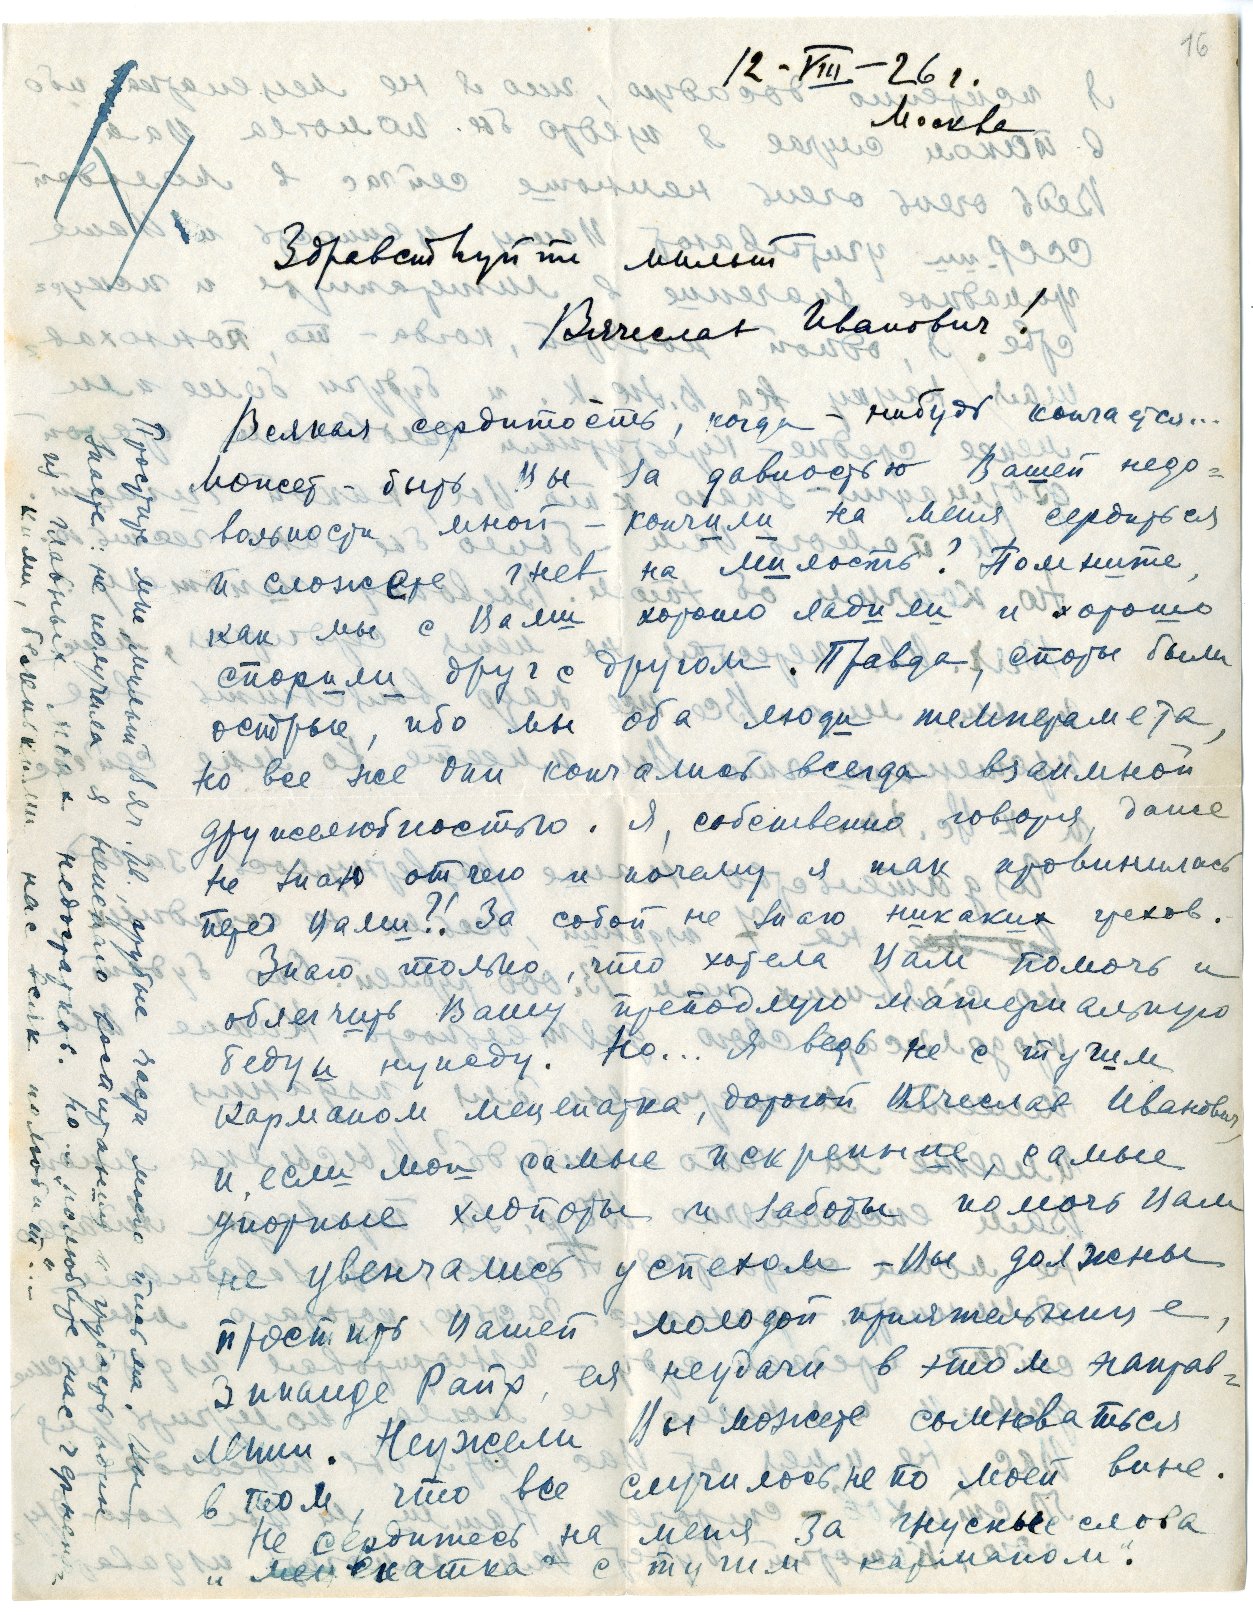 16
12-VIII-26 г.
Москва
Здравствуйте милый
Вячеслав Иванович!
Всякая сердитость, когда-нибудь кончается...
Может-быть Вы за давностью Вашей недо=
вольности мной – кончили на меня сердиться
и сложите гнев на милость? Помните,
как мы с Вами хорошо ладили и хорошо
спорили друг с другом. Правда, споры были
острые, ибо мы оба люди темперамета,
но все же они кончались всегда взаимной
дружелюбностью. Я, собственно говоря, даже
не знаю отчего и почему я так провинилась
перед Вами?! За собой не знаю никаких грехов.
Знаю только, что хотела Вам помочь и
облегчить Вашу преподлую материальную
беду и нужду. Но... я ведь не с тугим
карманом меценатка, дорогой Вячеслав Иванович,
и, если мои самые искренние, самые
упорные хлопоты и заботы помочь Вам
не увенчались успехом – Вы должны
простить Вашей молодой приятельнице,
Зинаиде Райх, ея неудачи в этом направ=
лении. Неужели Вы можете сомневаться
в том, что все случилось не по моей вине.
Не сердитесь на меня за гнусные слова
„меценатка" с тугим карманом".
Простите мне, милый Вяч. Ив., грубые части моего письма. Вы
знаете: не получала я воспитания и грубость один
из главных моих недостатков. Но... полюбите нас черненьк=
ими, беленькими нас всяк полюбит...